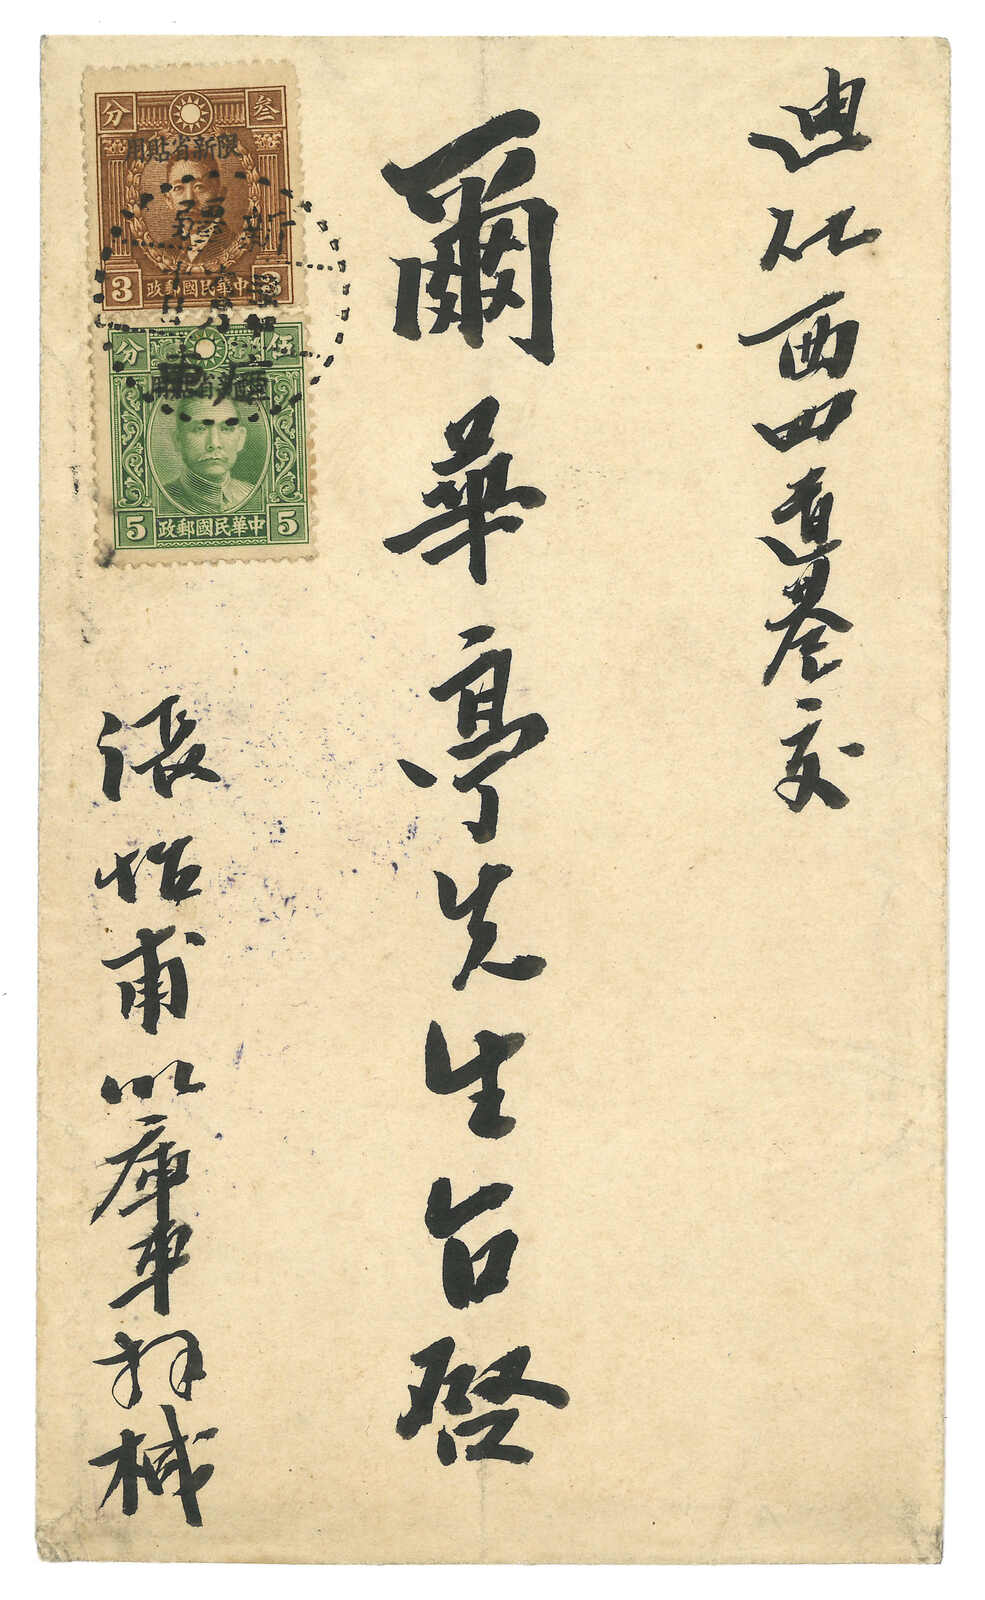 迪化西四道巷交
爾華亭先生台啓
張怡甫以庫車拜械
叁 分
限新省貼用
3 中華民國郵政 3
伍 分
限新省貼用
5 中華民國郵政 5
新疆
庫車